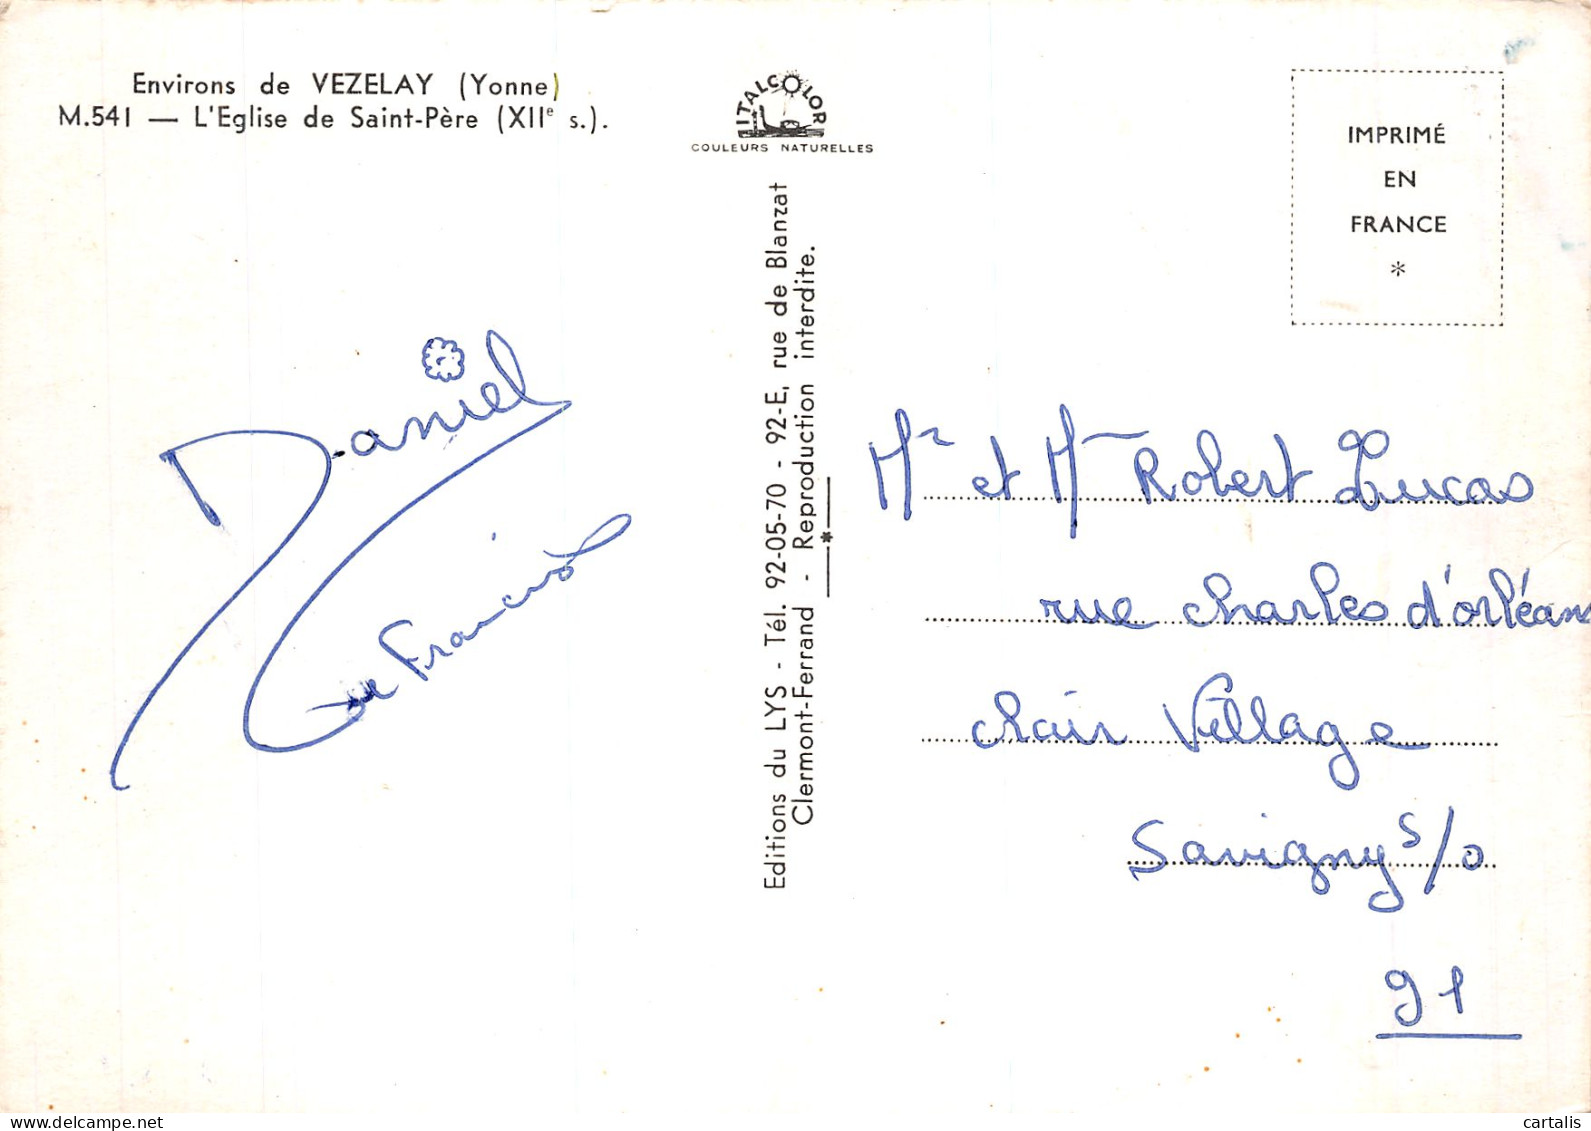 Environs de VEZELAY (Yonne)
M.541 — L'Eglise de Saint-Père (XIIe s.).
ITALCOLOR
COULEURS NATURELLES
IMPRIMÉ
EN
FRANCE
*
Editions du LYS - Tél. 92-05-70 - 92-E, rue de Blanzat
Clermont-Ferrand - Reproduction interdite.
*
Daniel
Francis
Mr et Mme Robert Lucas
rue charles d'orléans
chair Village
Savigny s/o
91
www.delcampe.net
cartalis